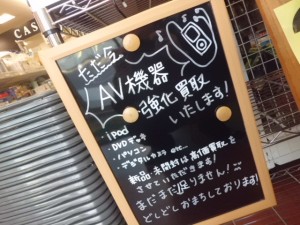 CAS
ただ今
AV機器
強化買取
いたします!
・ipod
・DVDデッキ
・パソコン
・デジタルカメラ etc...
新品・未開封は高価買取を
させていただきます!
まだまだ足りません!
どしどしおまちしております!